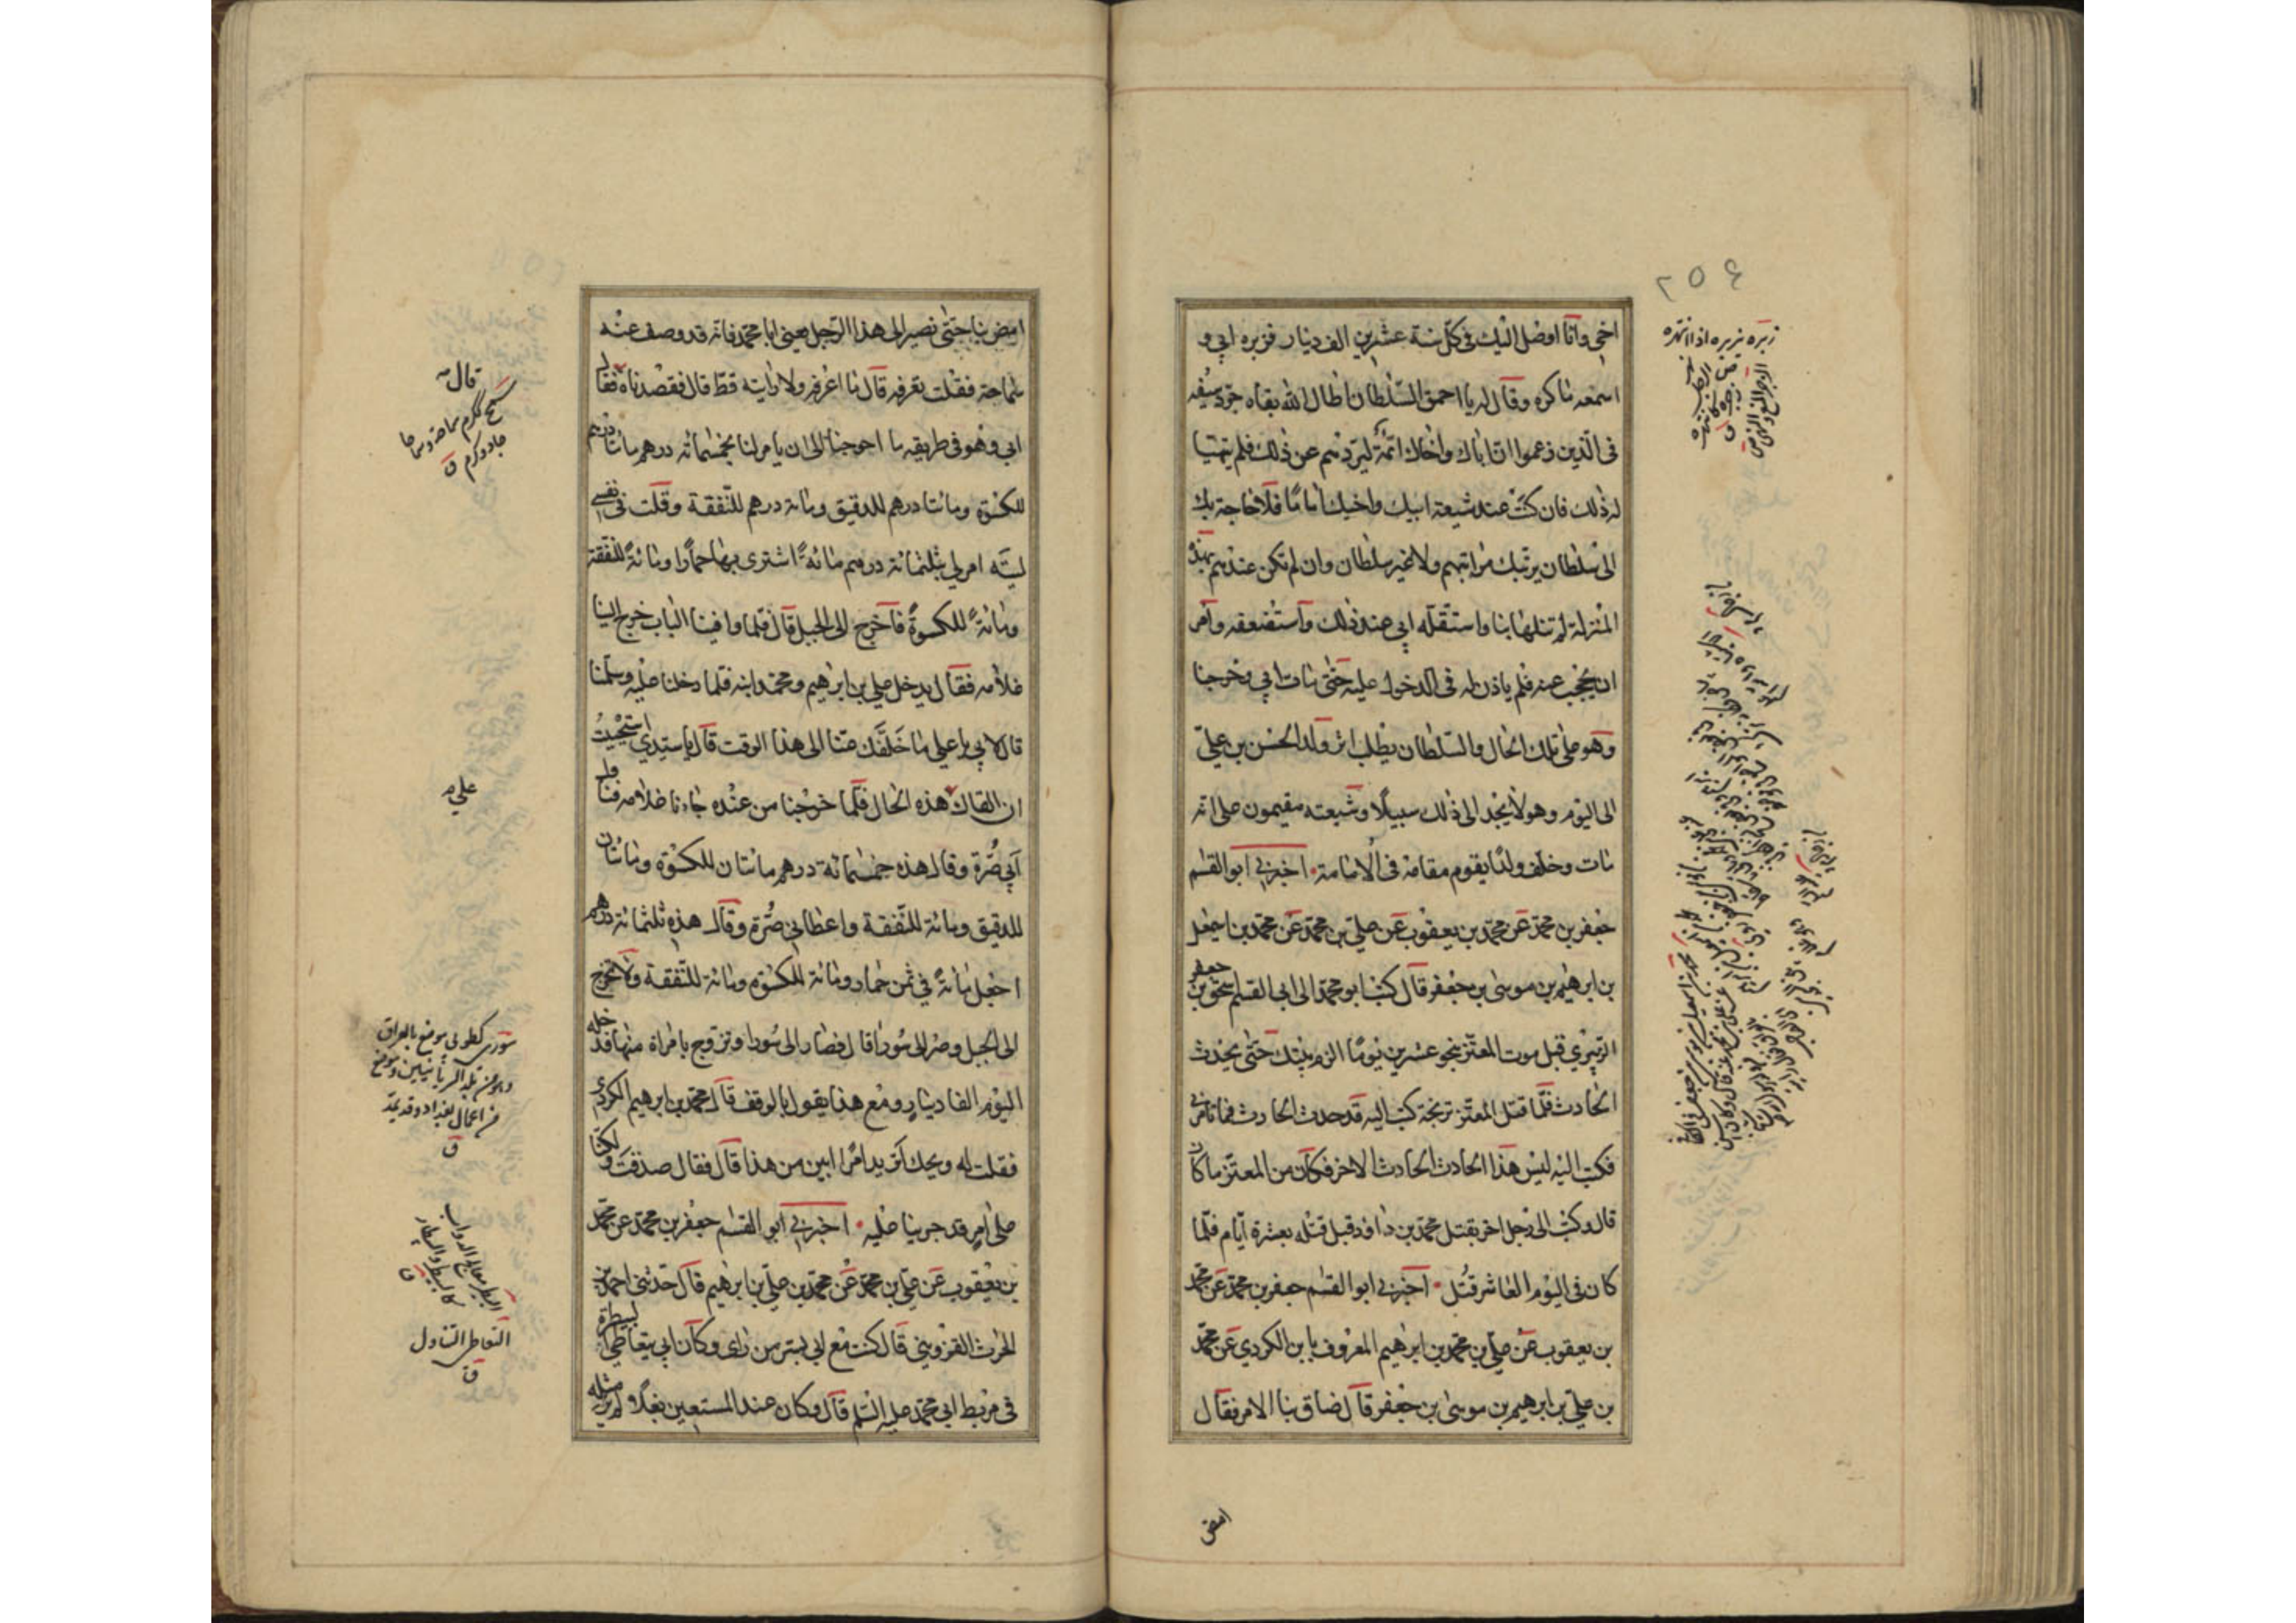 ٢٥٤
اخي وانا اوصل اليك في كل سنة عشرين الف دينار فزبره ابي و
اسمعه ماكره وقال له يا احمق السلطان اطال الله بقاه جرد سيفه
في الذين زعموا ان اباك واخاك ائمة ليردهم عن ذلك فلم يتهيا
له ذلك فان كنت عند شيعة ابيك واخيك اماما فلا حاجة بك
الى سلطان يرتبك مراتبهم ولا غير سلطان وان لم تكن عندهم بهذه
المنزلة لم تنلها بنا واستقله ابي عند ذلك واستضعفه وامر
ان يحجب عنه فلم ياذن له في الدخول عليه حتى مات ابي وخرجنا
وهو على تلك الحال والسلطان يطلب اثر ولد الحسن بن علي
الى اليوم وهو لا يجد الى ذلك سبيلا وشيعته مقيمون على انه
مات وخلف ولدا يقوم مقامه في الامامة اخبرني ابو القسم
جعفر بن محمد عن محمد بن يعقوب عن علي بن محمد عن محمد بن اسمعيل
بن ابرهيم بن موسى بن جعفر قال كتب ابو محمد الى ابي القسم اسحق بن جعفر
الزبيري قبل موت المعتز بنحو عشرين يوما الزم بيتك حتى يحدث
الحادث فلما قتل المعتز تربجة كتب اليه قد حدث الحادث فما تامرني
فكتب اليه ليس هذا الحادث الحادث الاخر فكان من المعتز ما كان
قال وكتب الى رجل اخر بقتل محمد بن داود قبل قتله بعشرة ايام فلما
كان في اليوم العاشر قتل اخبرني ابو القسم جعفر بن محمد عن محمد
بن يعقوب عن علي بن محمد بن ابرهيم المعروف بابن الكردي عن محمد
بن علي بن ابرهيم بن موسى بن جعفر قال ضاق بنا الامر فقال
زبره يزبره اذا انتهره
امض
امض بنا حتى نصير الى هذا الرجل يعني ابا محمد فانه قد وصف عنه
سماحة فقلت تعرفه قال ما اعرفه ولا رايته قط قال فقصدناه فقال لي
ابي وهو في طريقه ما احوجنا الى ان يامر لنا بخمسمائة درهم مائتا درهم
للكسوة ومائتا درهم للدقيق ومائة درهم للنفقة وقلت في نفسي
ليته امر لي بثلثمائة درهم مائة اشتري بها حمارا ومائة للنفقة
ومائة للكسوة فاخرج الى الجبل قال فلما وافينا الباب خرج الينا
غلامه فقال يدخل علي بن ابرهيم ومحمد وابنه فلما دخلنا عليه وسلمنا
قال لابي يا علي ما خلفك عنا الى هذا الوقت قال يا سيدي استحييت
ان القاك هذه الحال فلما خرجنا من عنده جاءنا غلامه فناول
ابي صرة وقال هذه خمسمائة درهم مائتان للكسوة ومائتان
للدقيق ومائة للنفقة واعطاني صرة وقال هذه ثلثمائة درهم
اجعل مائة في ثمن حمار ومائة للكسوة ومائة للنفقة ولا تخرج
الى الجبل وصر الى سورا قال فصار الى سورا وتزوج بامراة منها فدخله
اليوم الفا دينار ومع هذا يقول بالوقف قال محمد بن ابرهيم الكردي
فقلت له ويحك اتريد امرا ابين من هذا قال فقال صدقت ولكنا
على امر قد جرينا عليه اخبرني ابو القسم جعفر بن محمد عن محمد
بن يعقوب عن علي بن محمد عن محمد بن علي بن ابرهيم قال حدثني احمد بن
الحرث القزويني قال كنت مع ابي بسر من راى وكان ابي يتعاطى البيطرة
في مربط ابي محمد عليه السلم قال وكان عند المستعين بغلا لم ير مثله
سمح ككرم سماحة وسماحا
جاد وكرم ق
على
سورى كطوبى موضع بالعراق
وهو من بلد السريانيين وموضع
من اعمال بغداد وقد يمد
ق
التعاطي التناول
ق